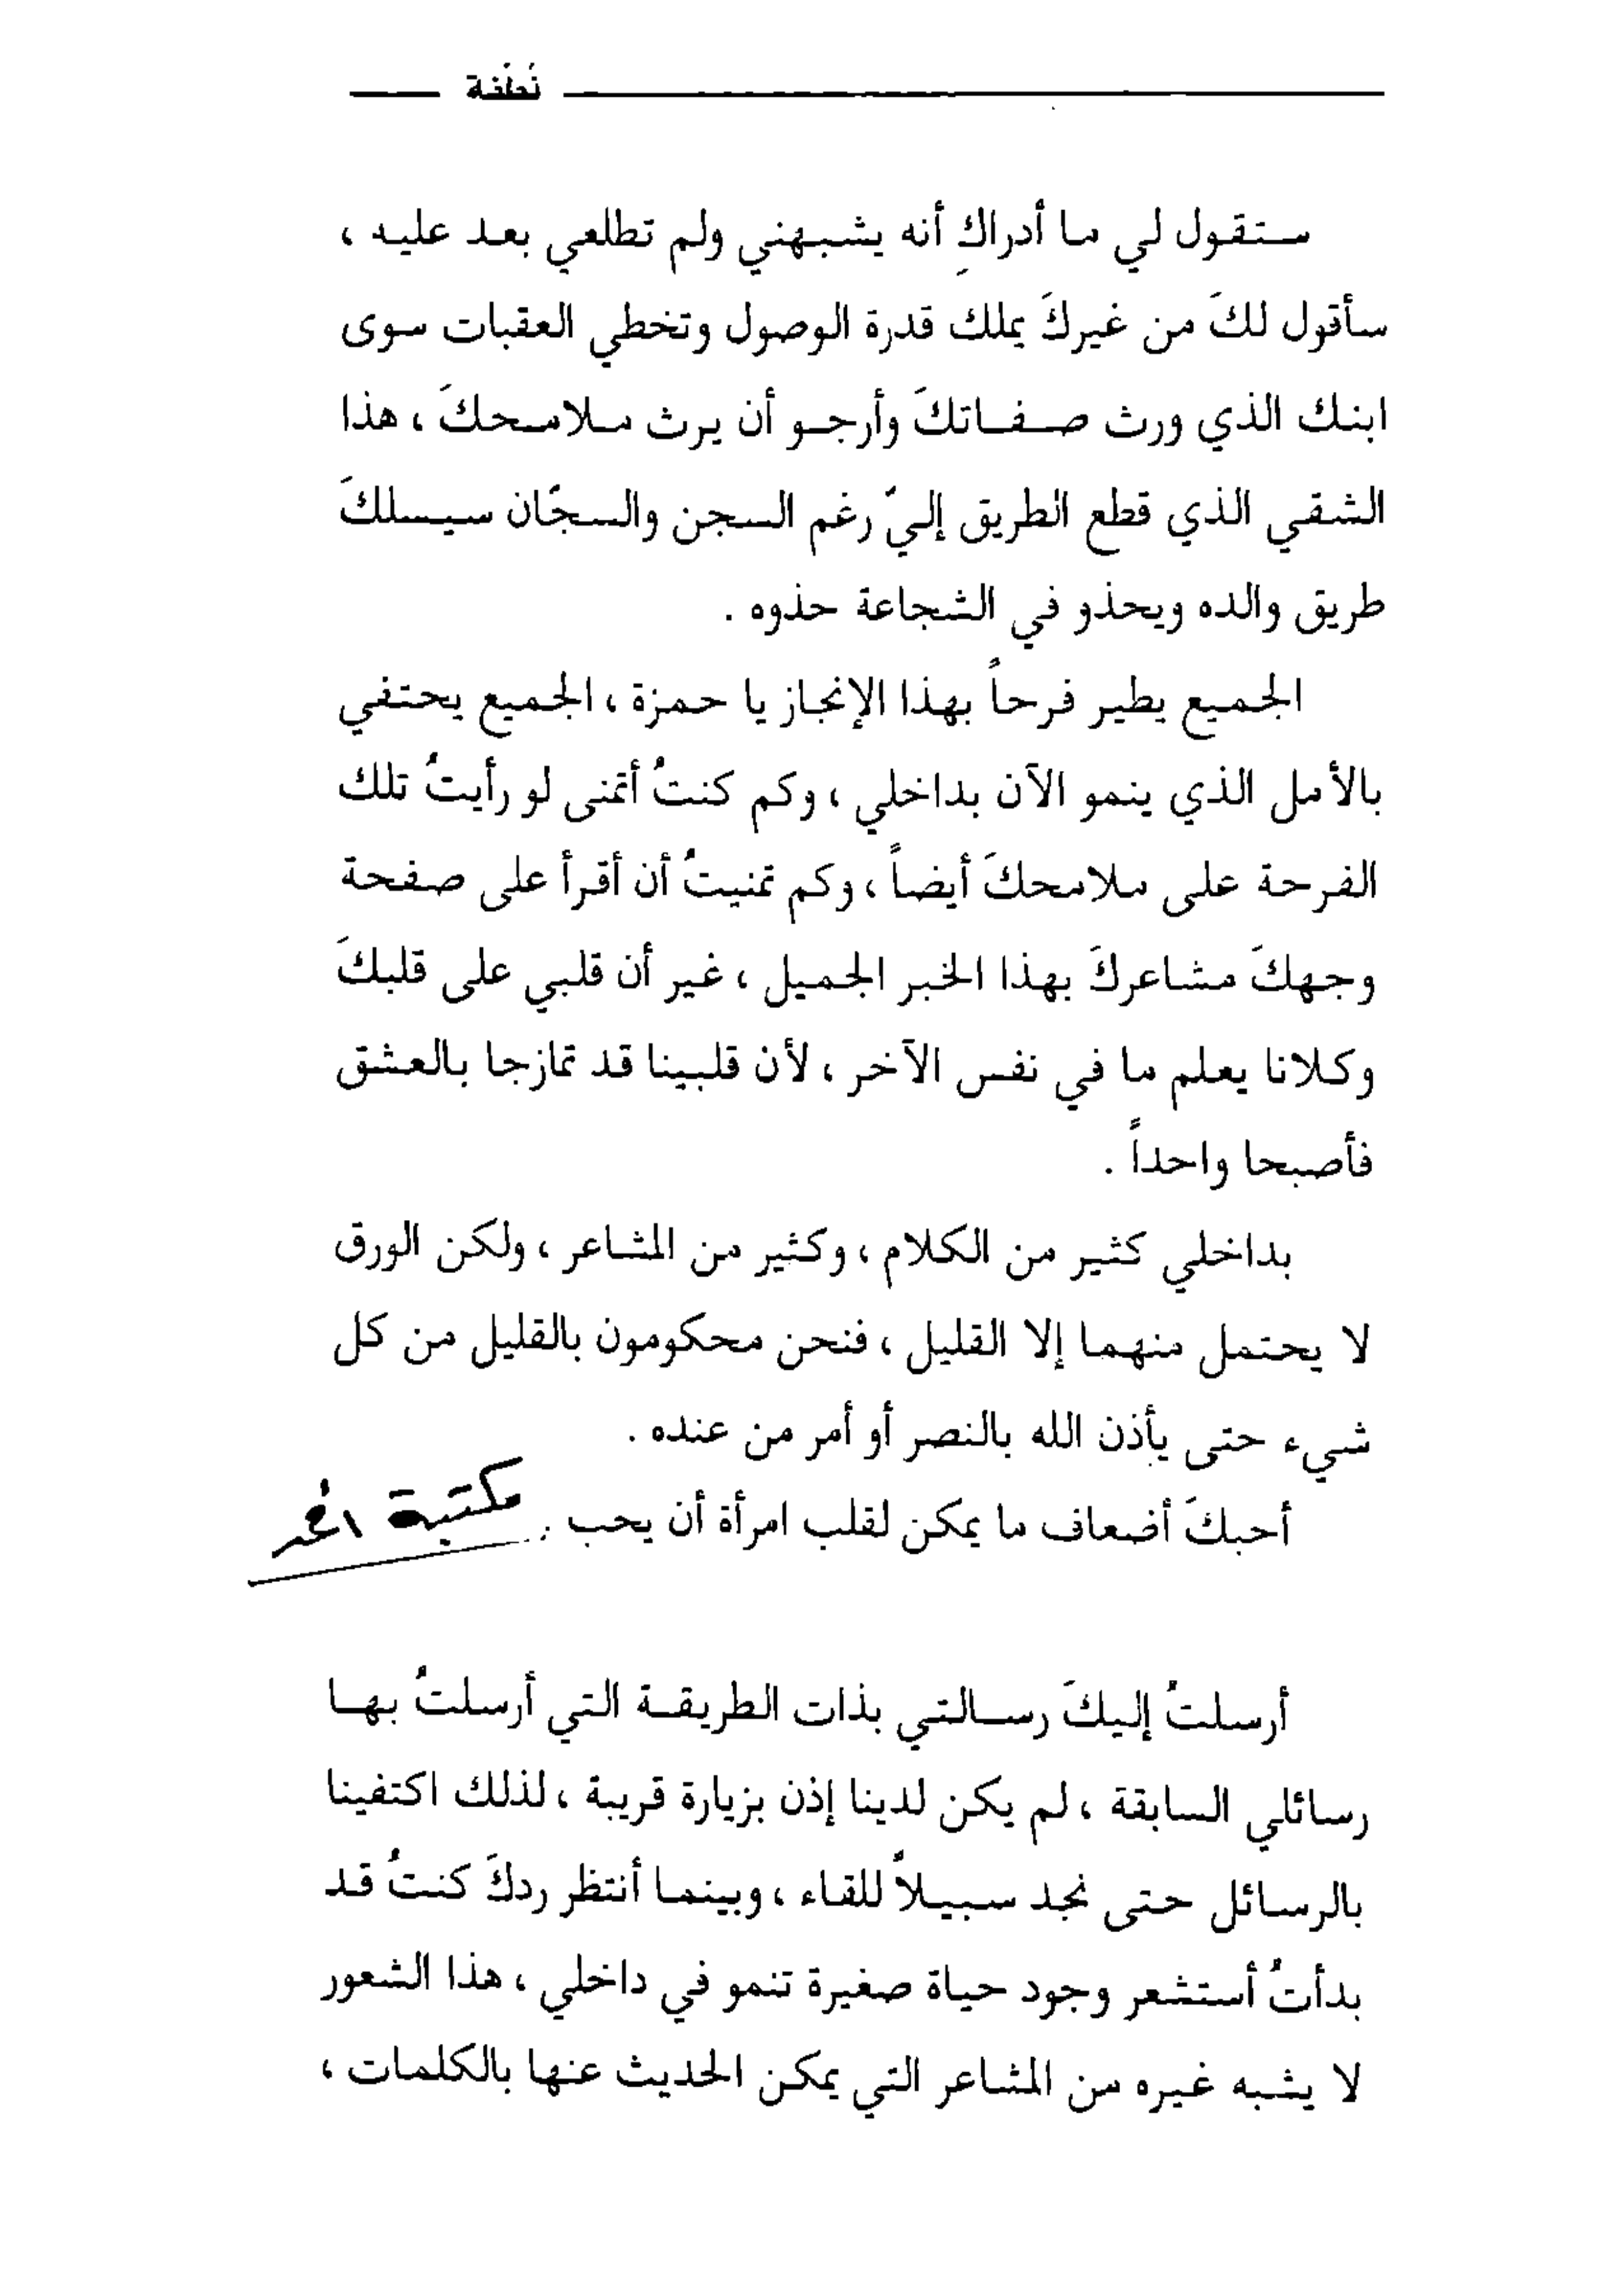 نُطْفة
ستقول لي ما أدراكِ أنه يشبهني ولم تطلعي بعد عليه ،
سأقول لكَ من غيركَ يملك قدرة الوصول وتخطي العقبات سوى
ابنك الذي ورث صفاتكَ وأرجو أن يرث ملامحكَ ، هذا
الشقي الذي قطع الطريق إليّ رغم السجن والسجّان سيسلكَ
طريق والده ويحذو في الشجاعة حذوه .
الجميع يطير فرحاً بهذا الإنجاز يا حمزة ، الجميع يحتفي
بالأمل الذي ينمو الآن بداخلي ، وكم كنتُ أتمنى لو رأيتُ تلك
الفرحة على ملامحكَ أيضاً ، وكم تمنيتُ أن أقرأ على صفحة
وجهكَ مشاعركَ بهذا الخبر الجميل ، غير أن قلبي على قلبكَ
وكلانا يعلم ما في نفس الآخر ، لأن قلبينا قد تمازجا بالعشق
فأصبحا واحداً .
بداخلي كثير من الكلام ، وكثير من المشاعر ، ولكن الورق
لا يحتمل منهما إلا القليل ، فنحن محكومون بالقليل من كل
شيء حتى يأذن الله بالنصر أو أمر من عنده .
أحبكَ أضعاف ما يمكن لقلب امرأة أن يحب .
مكتبة
أرسلتُ إليكَ رسالتي بذات الطريقة التي أرسلتُ بها
رسائلي السابقة ، لم يكن لدينا إذن بزيارة قريبة ، لذلك اكتفينا
بالرسائل حتى نجد سبيلاً للقاء ، وبينما أنتظر ردكَ كنتُ قد
بدأتُ أستشعر وجود حياة صغيرة تنمو في داخلي ، هذا الشعور
لا يشبه غيره من المشاعر التي يمكن الحديث عنها بالكلمات ،